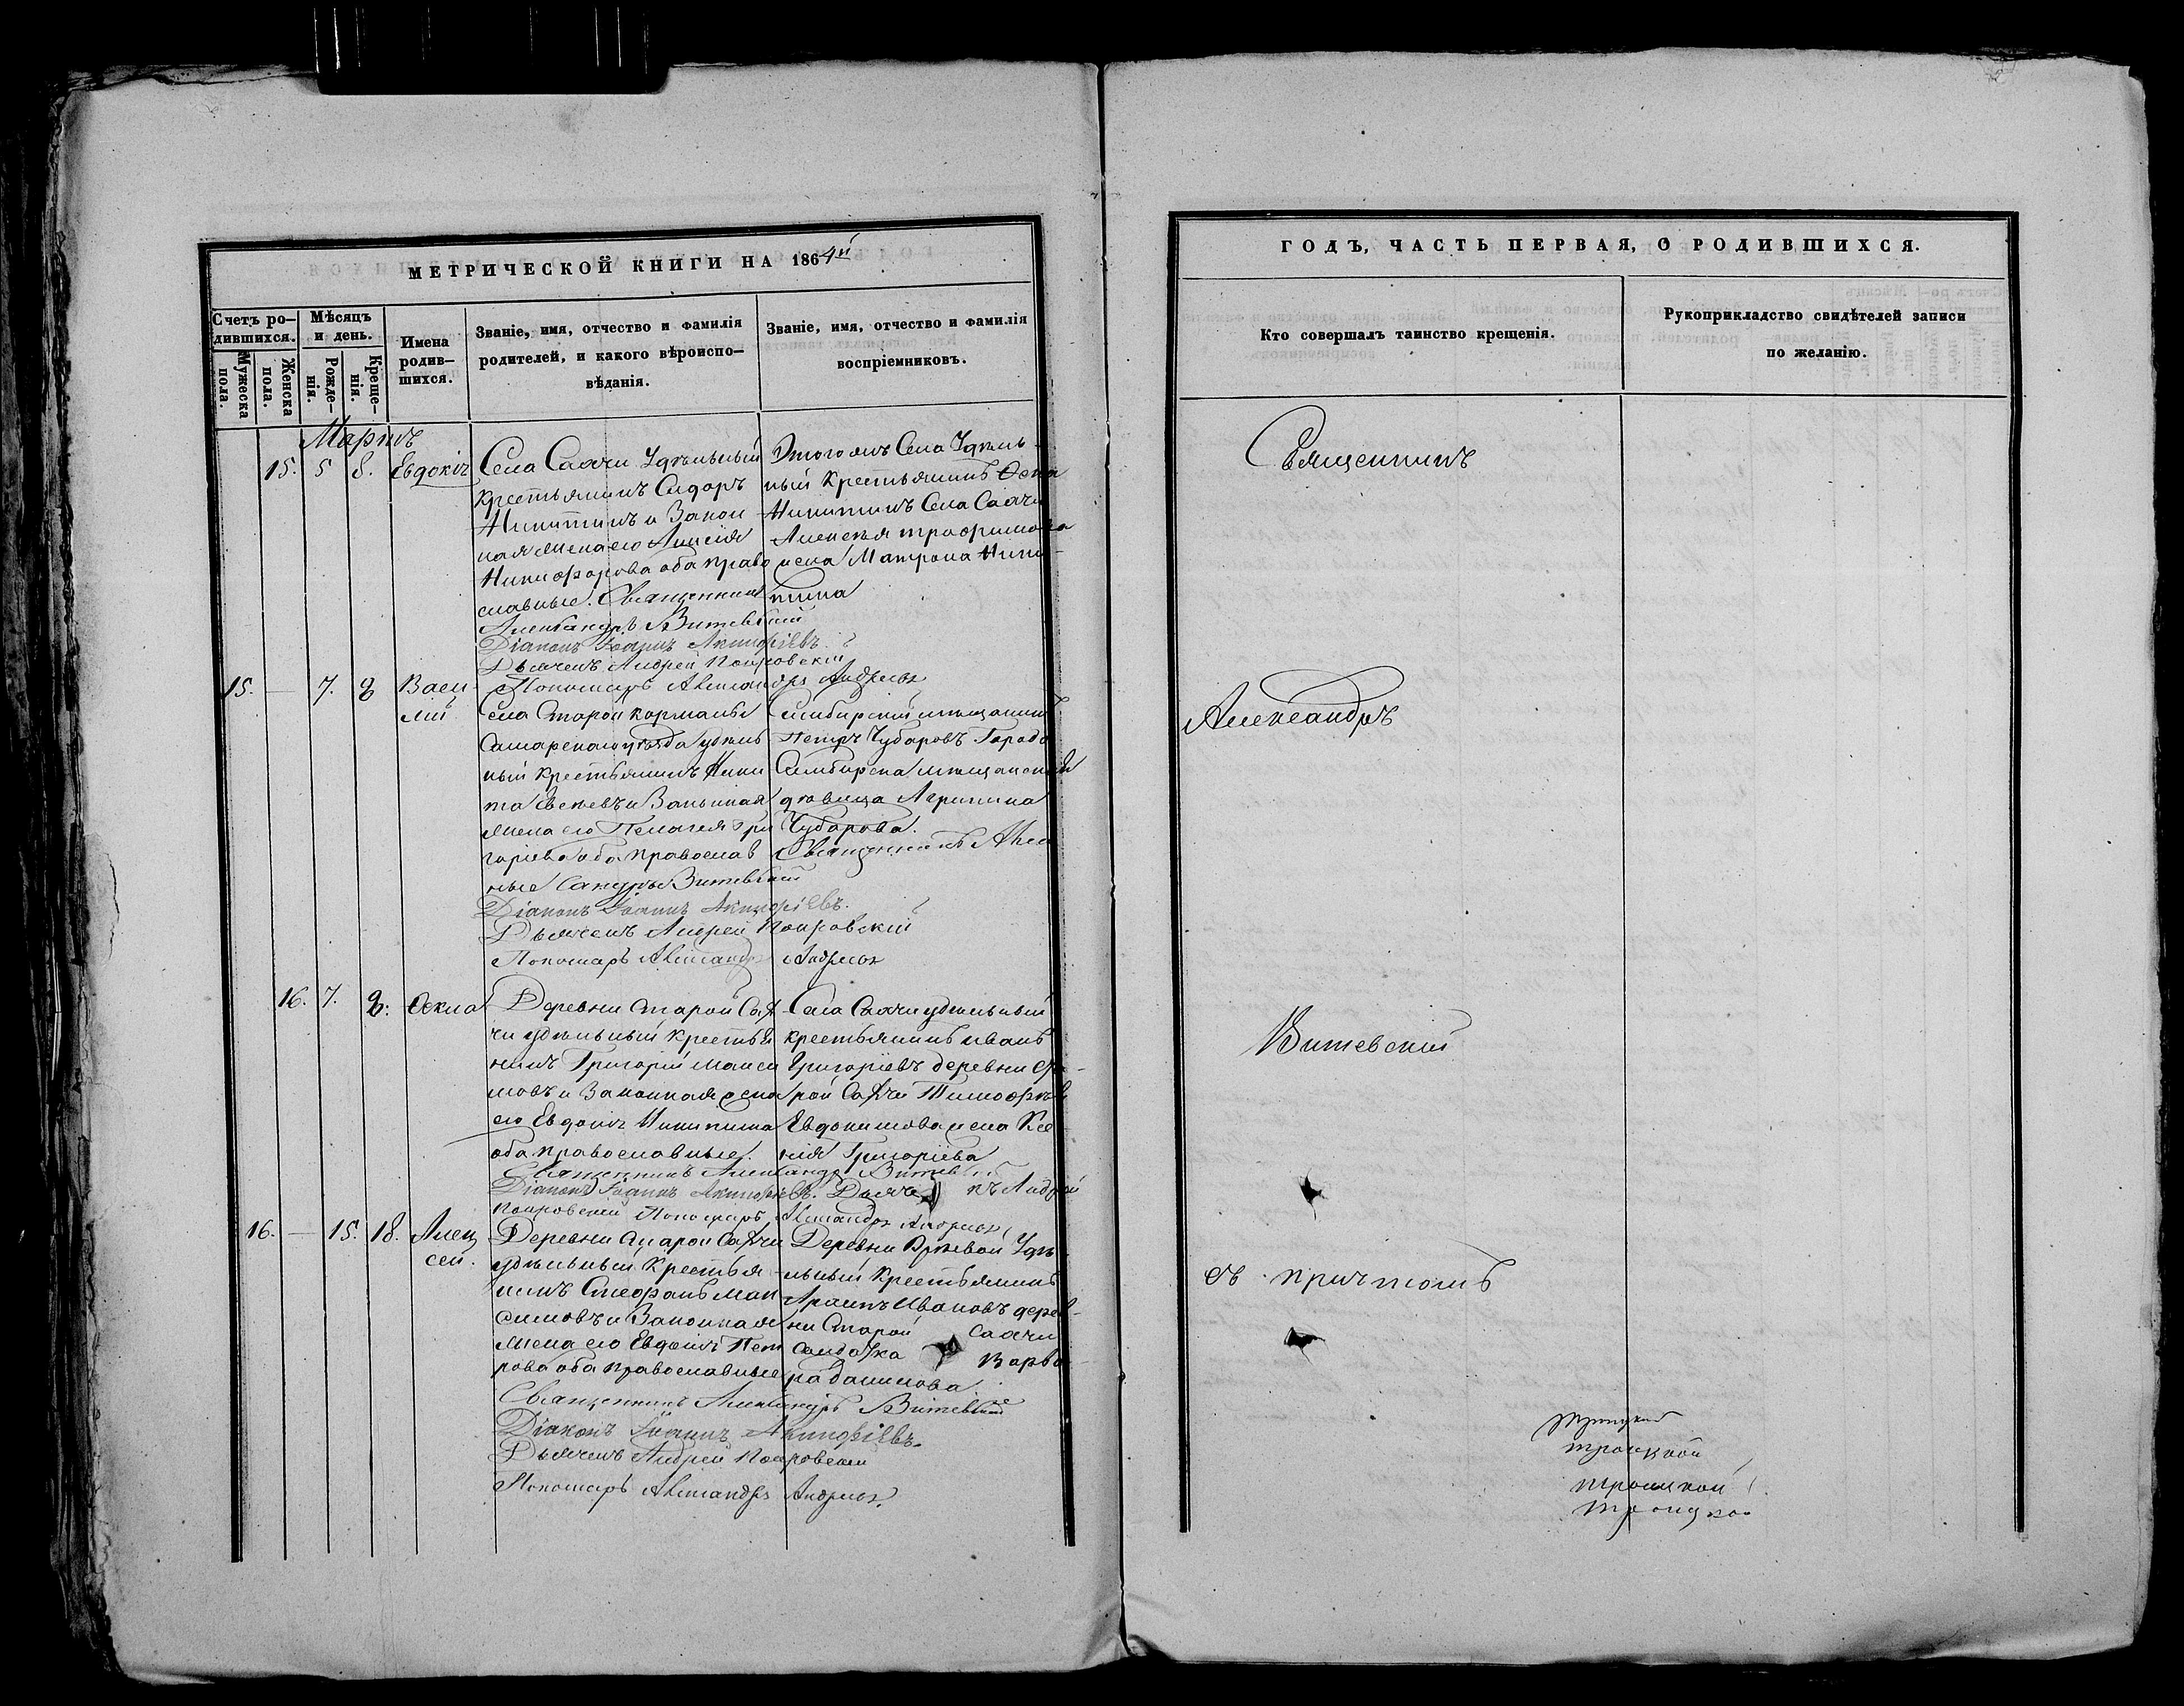 МЕТРИЧЕСКОЙ КНИГИ НА 1864й
Счетъ ро-
дившихся.
Мужеска
пола.
Женска
пола.
Мѣсяцъ
и день.
Рожде-
нія.
Креще-
нія.
Имена
родив-
шихся.
Званіе, имя, отчество и фамилія
родителей, и какого вѣроиспо-
вѣданія.
Званіе, имя, отчество и фамилія
воспріемниковъ.
Мартъ
15. 5 8. Евдокія
Села Саачи Удѣльный
Крестьянинъ Сидоръ
Никитинъ и Закон
ная жена его Анисія
Никифорова оба право
славные. Священникъ
Александръ Витевскій
Діаконъ Іоаннъ Акинфіевъ
Дьячекъ Андрей Покровскій
Пономарь Александръ Андреев
Этого жъ Села Удѣль-
ный Крестьянинъ
Никитинъ Села Саачи
Алексѣя трофимова
жена Матрона Ники-
тина
15. — 7. 8 Васи-
лій
Села Старой
Самарскаго уѣзда удѣль
ный крестьянинъ Ники
та и Законная
жена его Пелагея Гри
горіева оба православ
ные
Діаконъ Іоаннъ Акинфіевъ.
Дьячекъ Андрей Покровскій
Пономарь Александръ Андреев
Симбирскій мѣщанинъ
Петръ Чубаровъ Города
Симбирска мѣщанская
дѣвица Агрипина
Чубарова.
Священникъ Алек
сандръ Витевскій
16. 7. 8. Ѳекла
Деревни Старой Саа
чи удѣльный Крестья
нинъ Григорій Макси
мовъ и Законная жена
его Евдокія Никитина
оба православные.
Священникъ Александръ Витевскій
Діаконъ Іоаннъ Акинфіевъ. Дьячекъ Андрей
Покровскій Пономарь Александръ Андреев
Села Саачи удѣльный
крестьянинъ иванъ
Григоріевъ деревни Ста-
рой Саачи Тимофѣя
Евдокимова жена Ксе
нія Григоріева
16. — 15. 18. Алек
сей.
Деревни Старой Саачи
удѣльный Крестья
нинъ Стефанъ Мак
симовъ и Законная
жена его Евдокія Пет
рова оба православные
Священникъ Александръ Витевскій
Діаконъ Іоаннъ Акинфіевъ.
Дьячекъ Андрей Покровскій
Пономарь Александръ Андреев
Деревни Удѣ-
льный Крестьянинъ
Ивановъ дерев-
ни Старой Саачи
солдатка Варва-
ра
ГОДЪ, ЧАСТЬ ПЕРВАЯ, О РОДИВШИХСЯ.
Кто совершалъ таинство крещенія.
Рукоприкладство свидѣтелей записи
по желанію.
Священникъ
Александръ
Витевскій
съ причтомъ
троицкой
троицкой
троицкой
троицкой